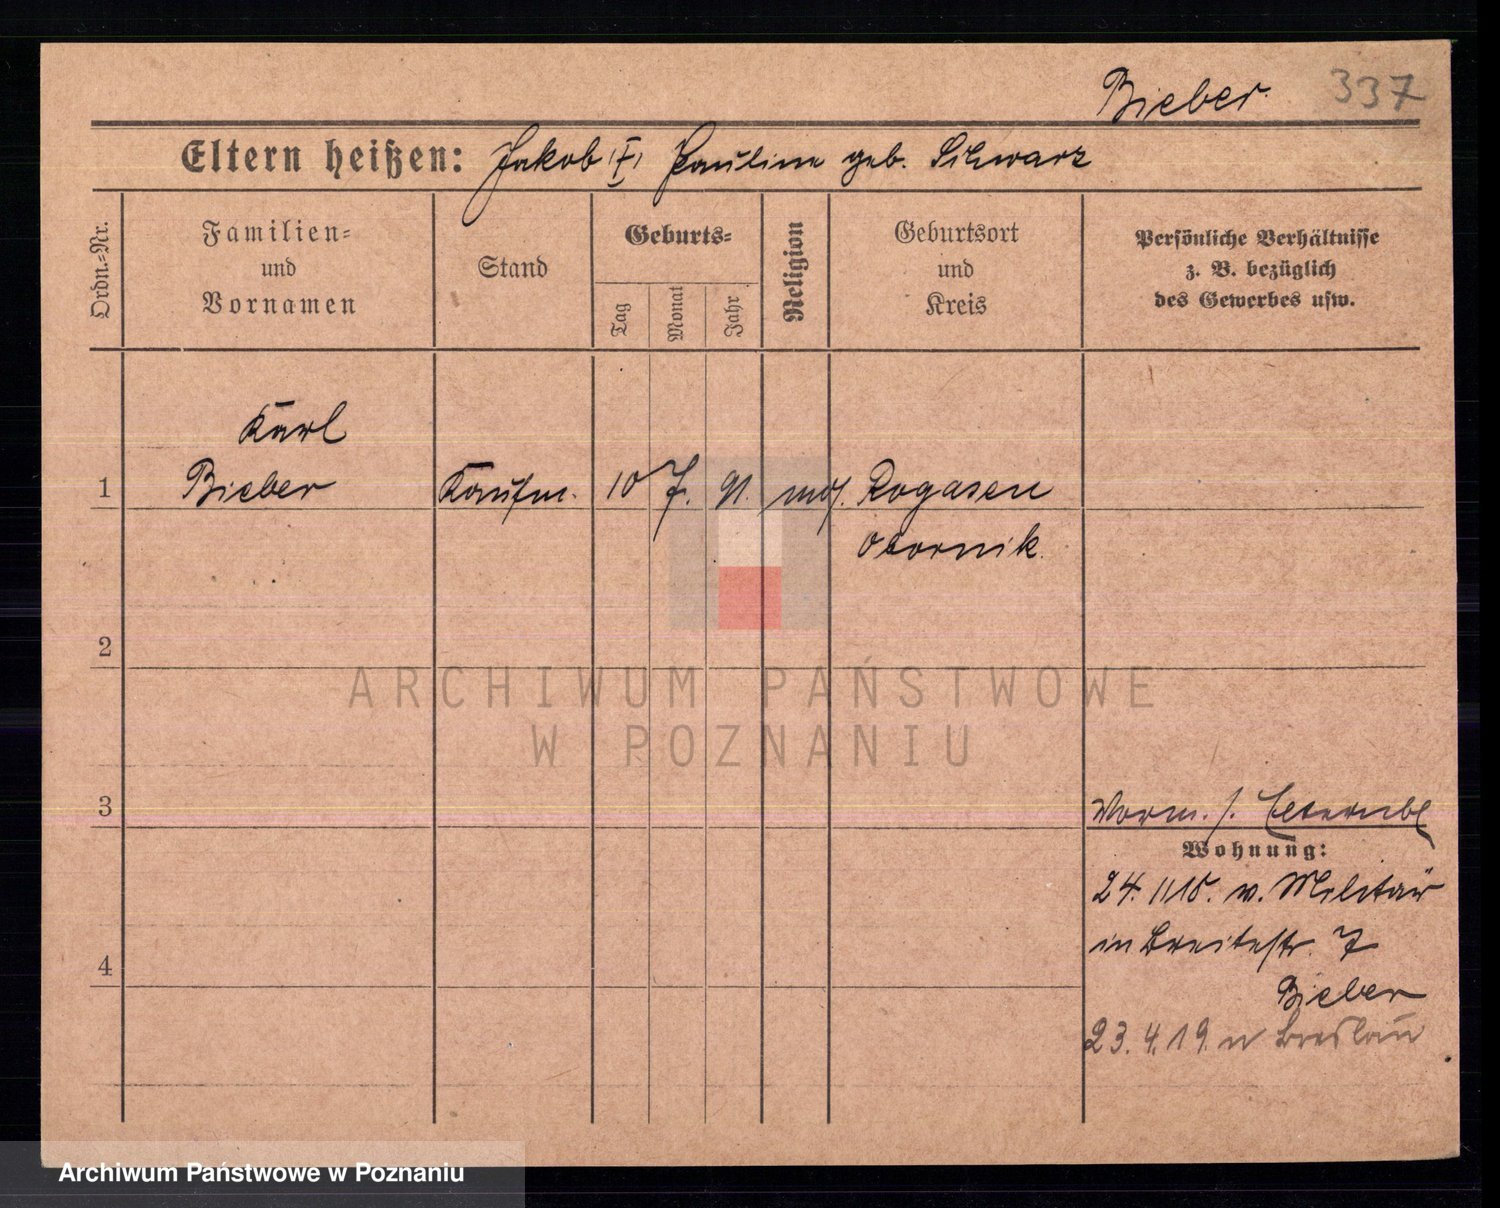 Bieber. 337
Eltern heißen: Jakob Pauline geb. Schwarz
Ordn.-Nr.
Familien-
und
Vornamen
Stand
Geburts-
Tag
Monat
Jahr
Religion
Geburtsort
und
Kreis
Persönliche Verhältnisse
z. B. bezüglich
des Gewerbes usw.
Karl
1 Bieber Kaufm. 10 7. 91. mos. Rogasen
Obornik.
2
ARCHIWUM PAŃSTWOWE
W POZNANIU
3
Vorm. s. Elternbl
Wohnung:
24. 1115. v. Militär
in Breitestr. 7
4
Bieber
23. 4. 19. n Breslau
Archiwum Państwowe w Poznaniu